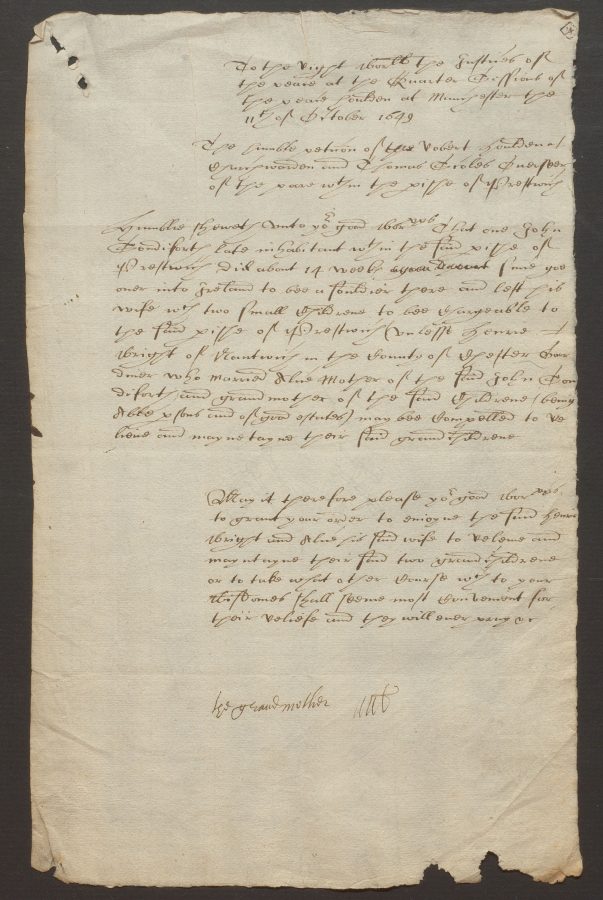 To the right worll the Justices of
the peace at the Quarter Sessions of
the peace houlden at Manchester the
11th of October 1649
The humble peticion of the Robert houlden
Churchwarden and Thomas Scoles Overseer
of the poore wthin the pishe of Prestwich
Humblie sheweth unto yor good worpps That one John
Sondiforth late inhabitant wthin the said pishe of
Prestwich did about 14 weeks since goe
over into Ireland to bee a souldier there and left his
wife wth two small Childrene to bee Chargeable to
the said pishe of Prestwich (unlesse Henrie
Wright of Nantwich in the County of Chester
who married Alne Mother of the said John Son
diforth and grandmother of the said Childrene (being
Able psons and of good estates) may bee Compelled to Re
lieve and maynetayne their said grandchildrene
May it therefore please yor good worpps
to grant your order to enioyne the said Henrie
Wright and Alne his said wife to Releeve and
mayntayne their said two grandchildrene
or to take what other Course wch to your
Wisdomes shall seeme most Convenient for
their Reliefe and they will ever pray &c
the grandmother